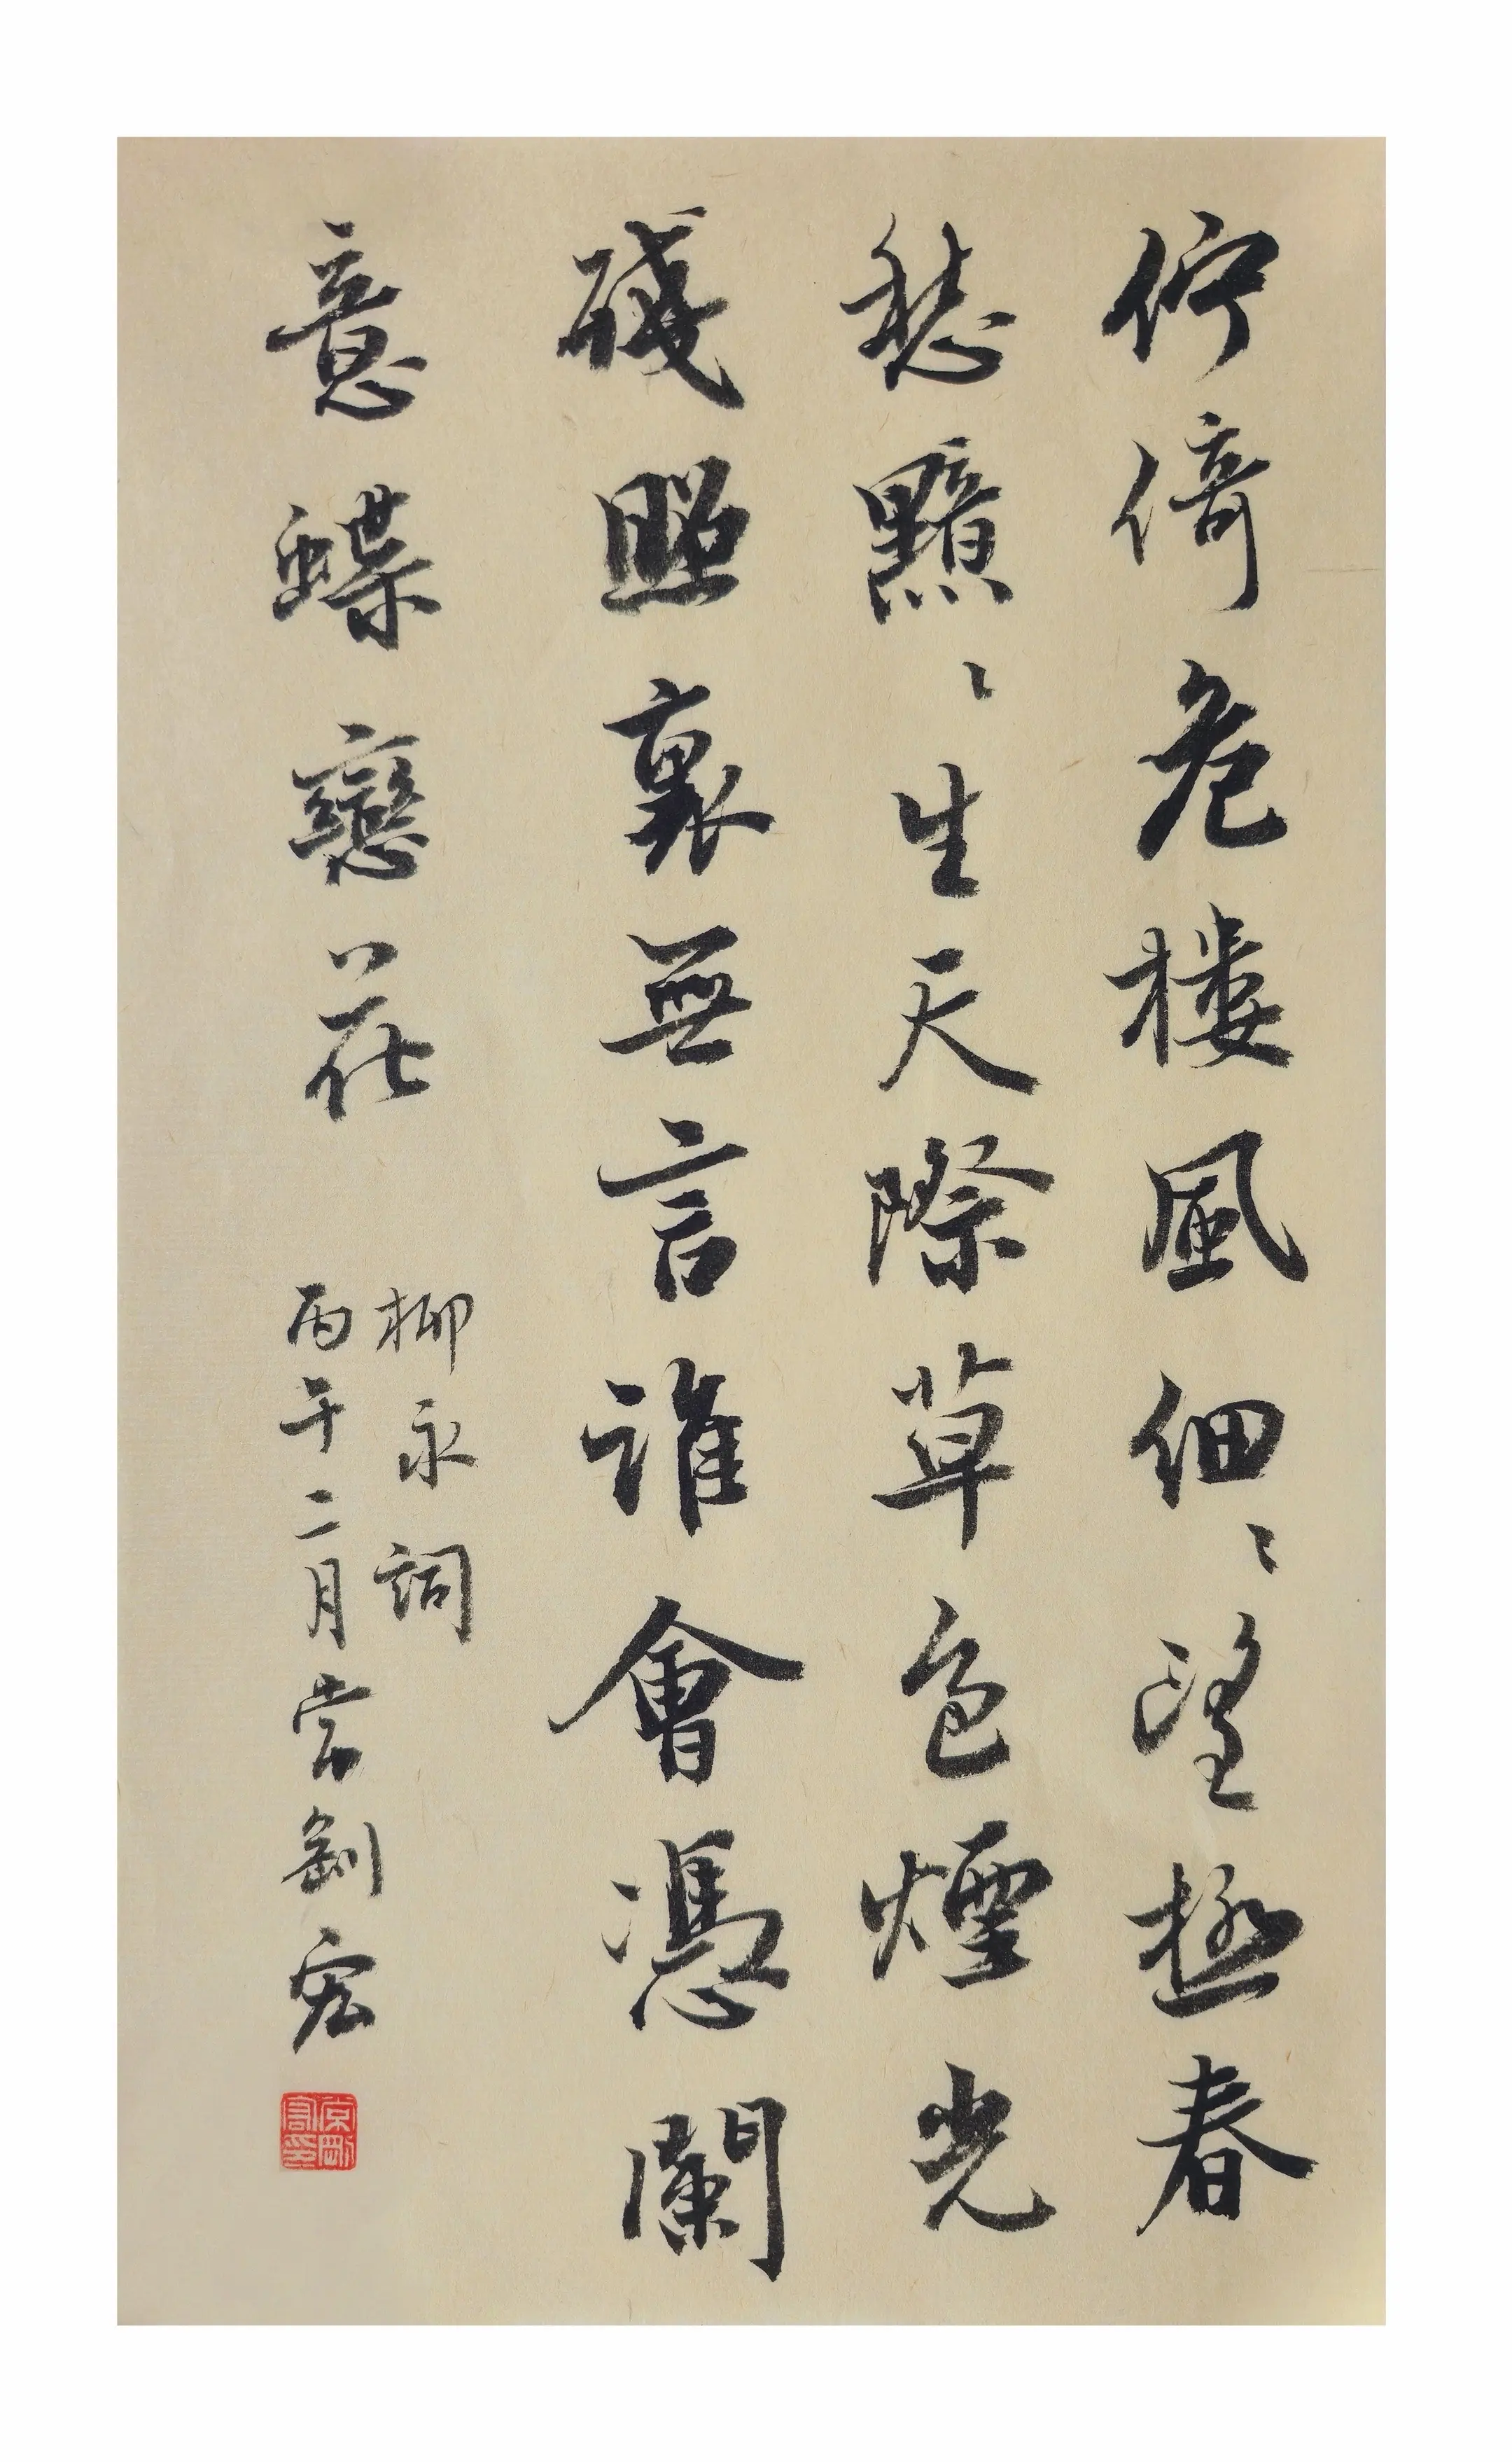 佇倚危樓風細〻望極春
愁黯〻生天際草色煙光
殘照裏無言誰會憑闌
意蝶戀花
柳永詞
丙午二月常宏